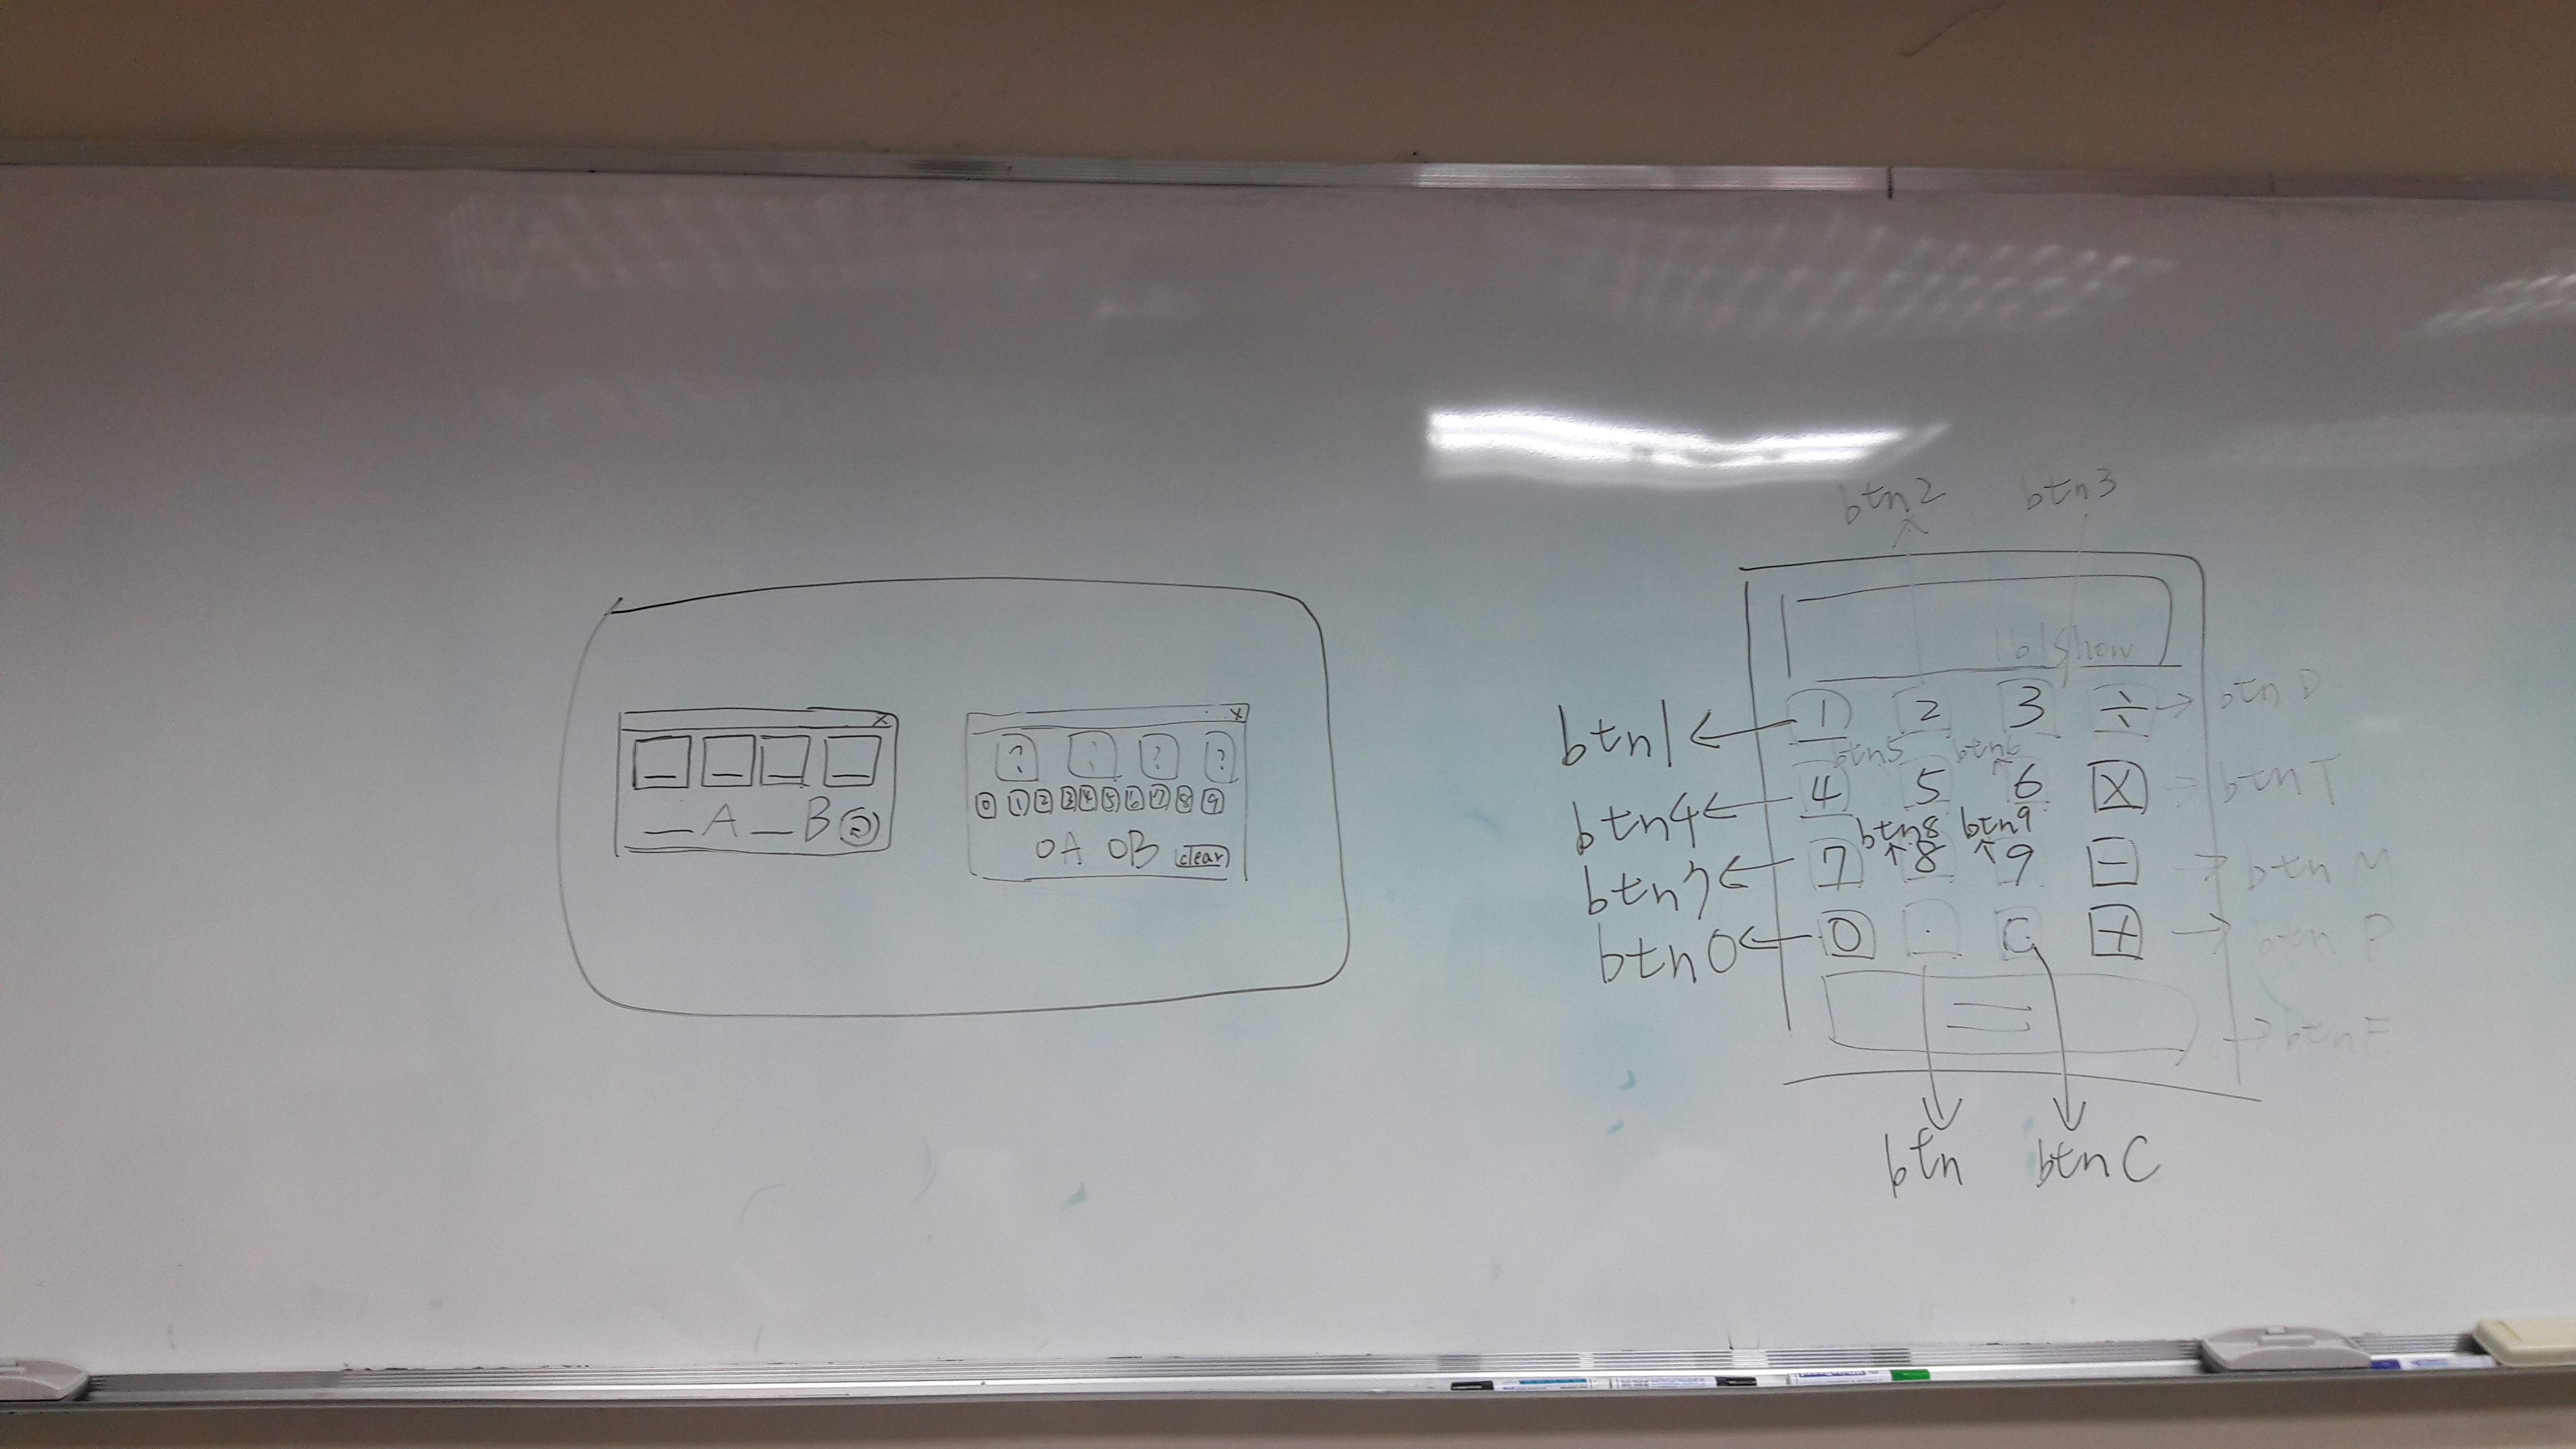 X
_ _ _ _
_A _B
X
? ? ?
0 1 2 3 4 5 6 7 8 9
0A 0B clear
btn2 btn3
lblshow
btn1 ← 1 2 3 ÷ → btn D
btn5 btn6
btn4 ← 4 5 6 × → btn T
btn8 btn9
btn7 ← 7 8 9 − → btn M
btn0 ← 0 . C + → btn P
= → btn E
btn btn C